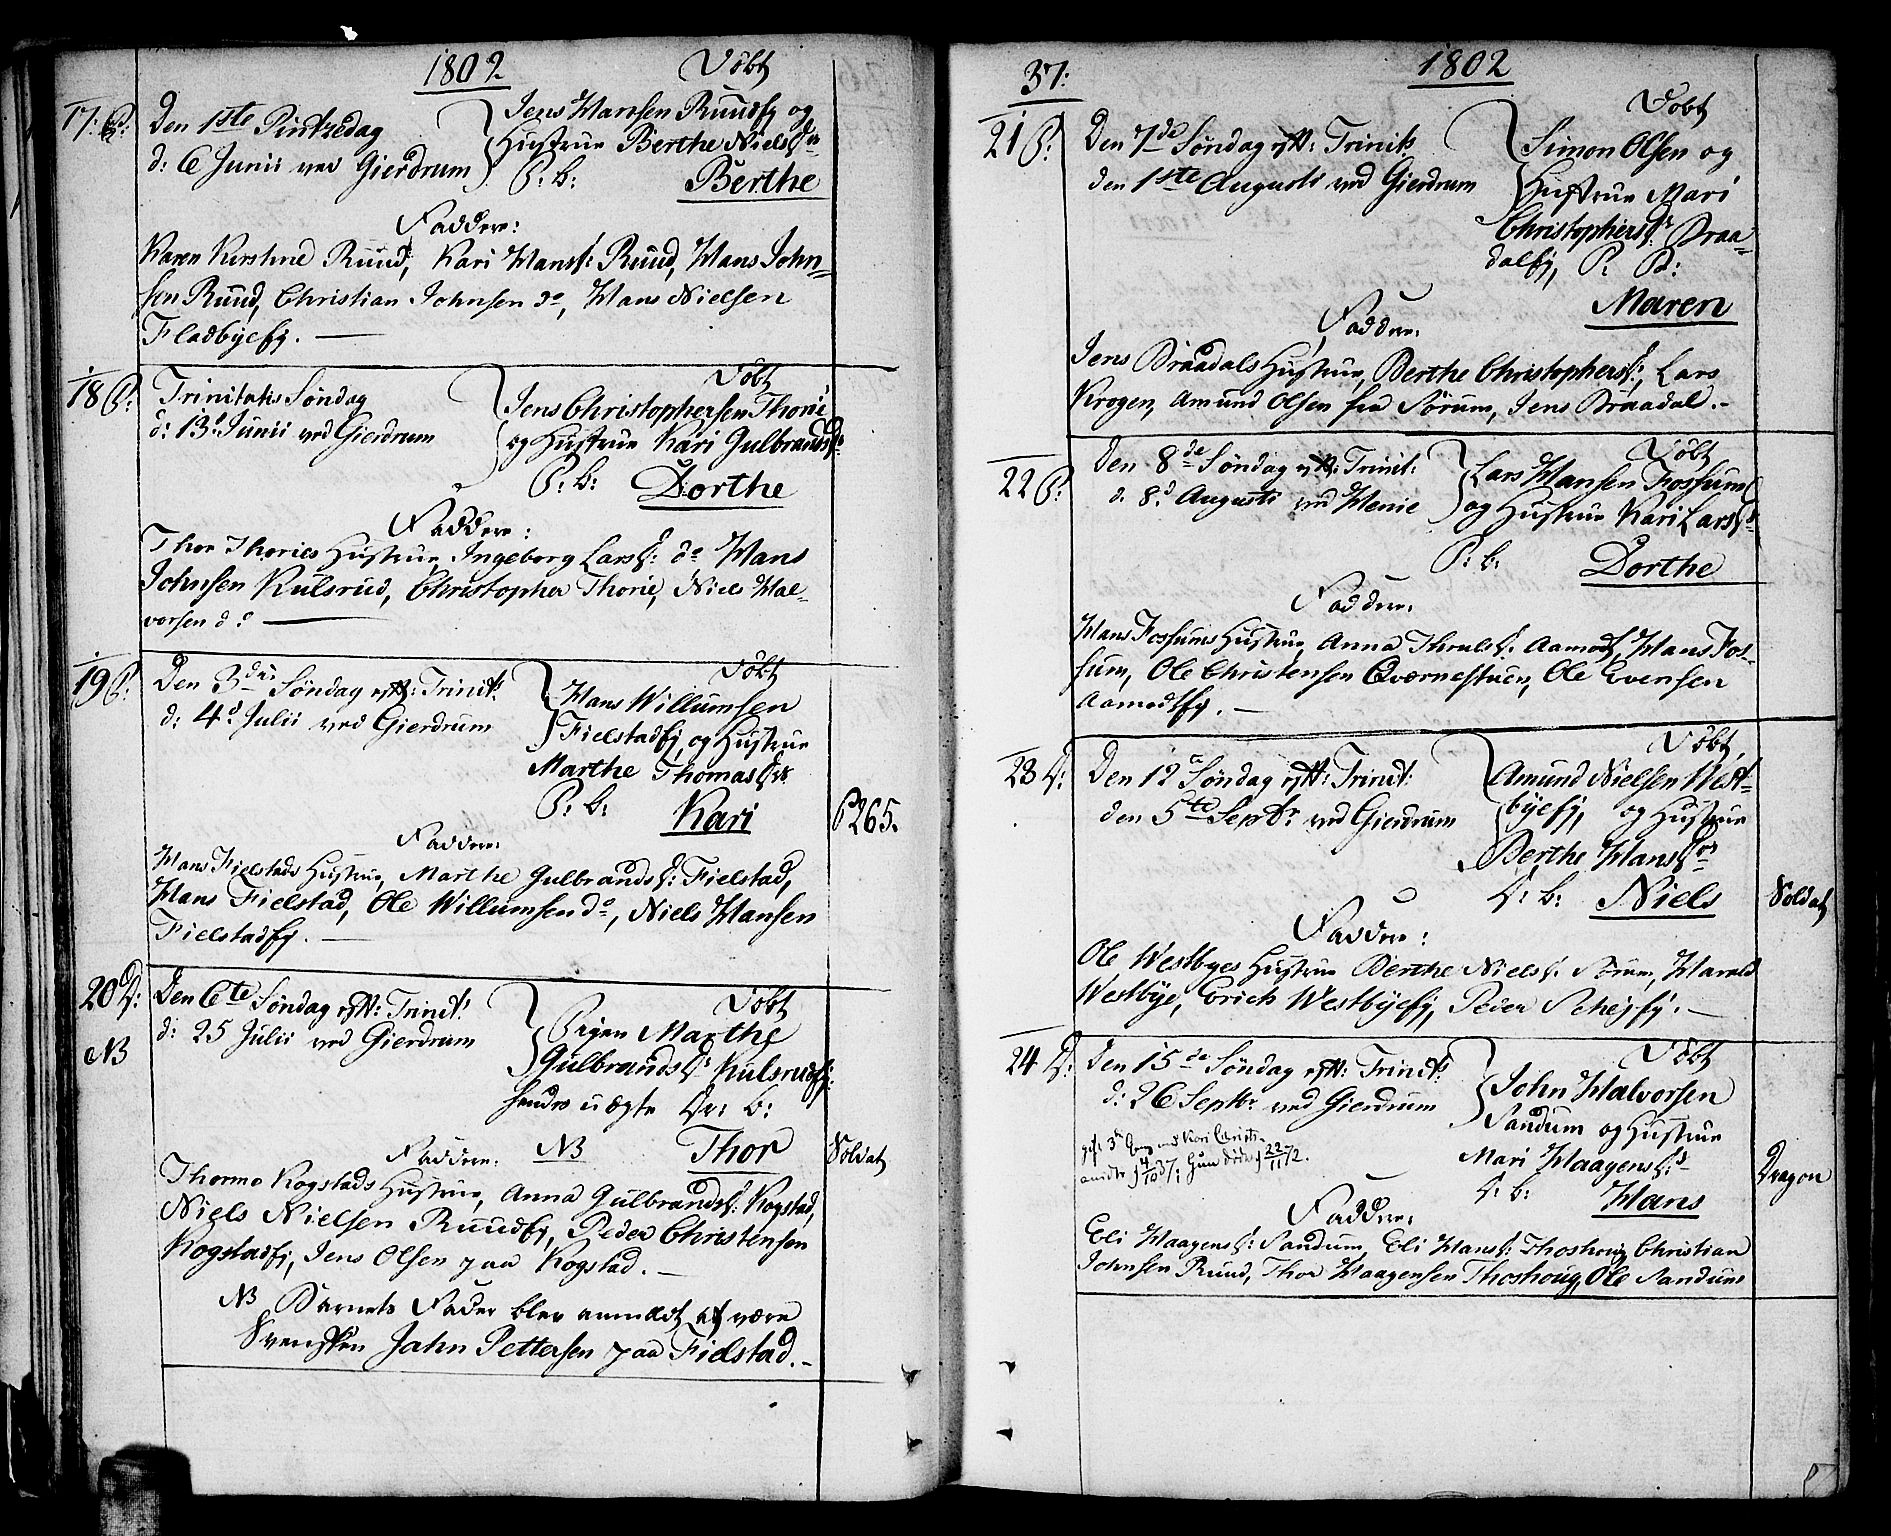 1802
Døbt
17. P:
Den 1ste Pintzedag
d: 6 Junii ved Gierdrum
Jens Hansen Ruudfg og
Hustrue Berthe Nielsdr
P: b: Berthe
Faddere:
Karen Kirstine Ruud, Kari Hansd: Ruud, Hans John-
sen Ruud, Christian Johnsen do, Hans Nielsen
Fladbyefg. —
18 P:
Trinitatis Søndag
d: 13d Junii ved Gierdrum
Døbt
Jens Christophersen Thorie
og Hustrue Kari Gulbrandsdr
P: b: Dorthe
Faddere:
Thor Thories Hustrue, Ingeborg Larsd: do, Hans
Johnsen Kulsrud, Christopher Thorie, Niels Hal-
vorsen do —
19 P:
Den 3die Søndag eft: Trinit:
d: 4d Julii ved Gierdrum
Døbt
Hans Willumsen
Fielstadfg og Hustrue
Marthe Thomasdr
P: b: Kari
P265.
Faddere:
Hans Fielstads Hustrue, Marthe Gulbrandsd: Fielstad,
Hans Fielstad, Ole Willumsen do, Niels Hansen
Fielstadfg. —
20 D:
NB
Den 6te Søndag eft: Trinit:
d: 25 Julii ved Gierdrum
Døbt
Pigen Marthe
Gulbrandsdr Kulsrudfg:
hendes uægte Dr: b:
Faddere: NB Thor
Soldat
Thormo Kogstads Hustrue, Anna Gulbrandsd: Kogstad,
Niels Nielsen Ruudfg, Peder Christensen
Kogstadfg, Jens Olsen paa Kogstad. —
NB Barnets Fader blev anmeldt at være
Svensken Jahn Pettersen paa Fielstad. —
37:
1802
21 P:
Den 7de Søndag eft: Trinits
den 1ste Augusti ved Gierdrum
Døbt
Simon Olsen og
Hustrue Mari
Christophersdr Braa-
dalfg, P. B:
Maren
Faddere:
Jens Braadals Hustrue, Berthe Christophersd:, Lars
Krogen, Amund Olsen fra Sørum, Jens Braadal. —
22 P:
Den 8de Søndag eft: Trinit:
d. 8d Augusti ved Henie
Døbt
Lars Hansen Fossum
og Hustrue Kari Larsdr
P: b: Dorthe
Faddere:
Hans Fossums Hustrue, Anna Thrulsd: Aamod, Hans Fos-
sum, Ole Christensen Qværnestuen, Ole Evensen
Aamodfg. —
23 D:
Den 12te Søndag eft: Trinit:
den 5te Septbr ved Gierdrum
Døbt,
Amund Nielsen West-
byefg, og Hustrue
Berthe Hansdr
D: b: Niels
Soldat
Faddere:
Ole Westbyes Hustrue Berthe Nielsd: Sørum, Harald
Westbye, Erich Westbyefg, Peder Schejfg. —
24 D:
Den 15de Søndag eft: Trinit:
d: 26 Septbr ved Gierdrum
Døbt
John Halvorsen
Sandum og Hustrue
Mari Haagensdr
D: b: Hans
Dragon
gift 3d Gang med Kari Christi-
ansdtr 4/10 37; Hun døde 22/11 72.
Faddere:
Eli Haagensd: Sandum, Eli Hansd: Thoshoug, Christian
Johnsen Ruud, Thor Haagensen Thoshoug, Ole Sandum